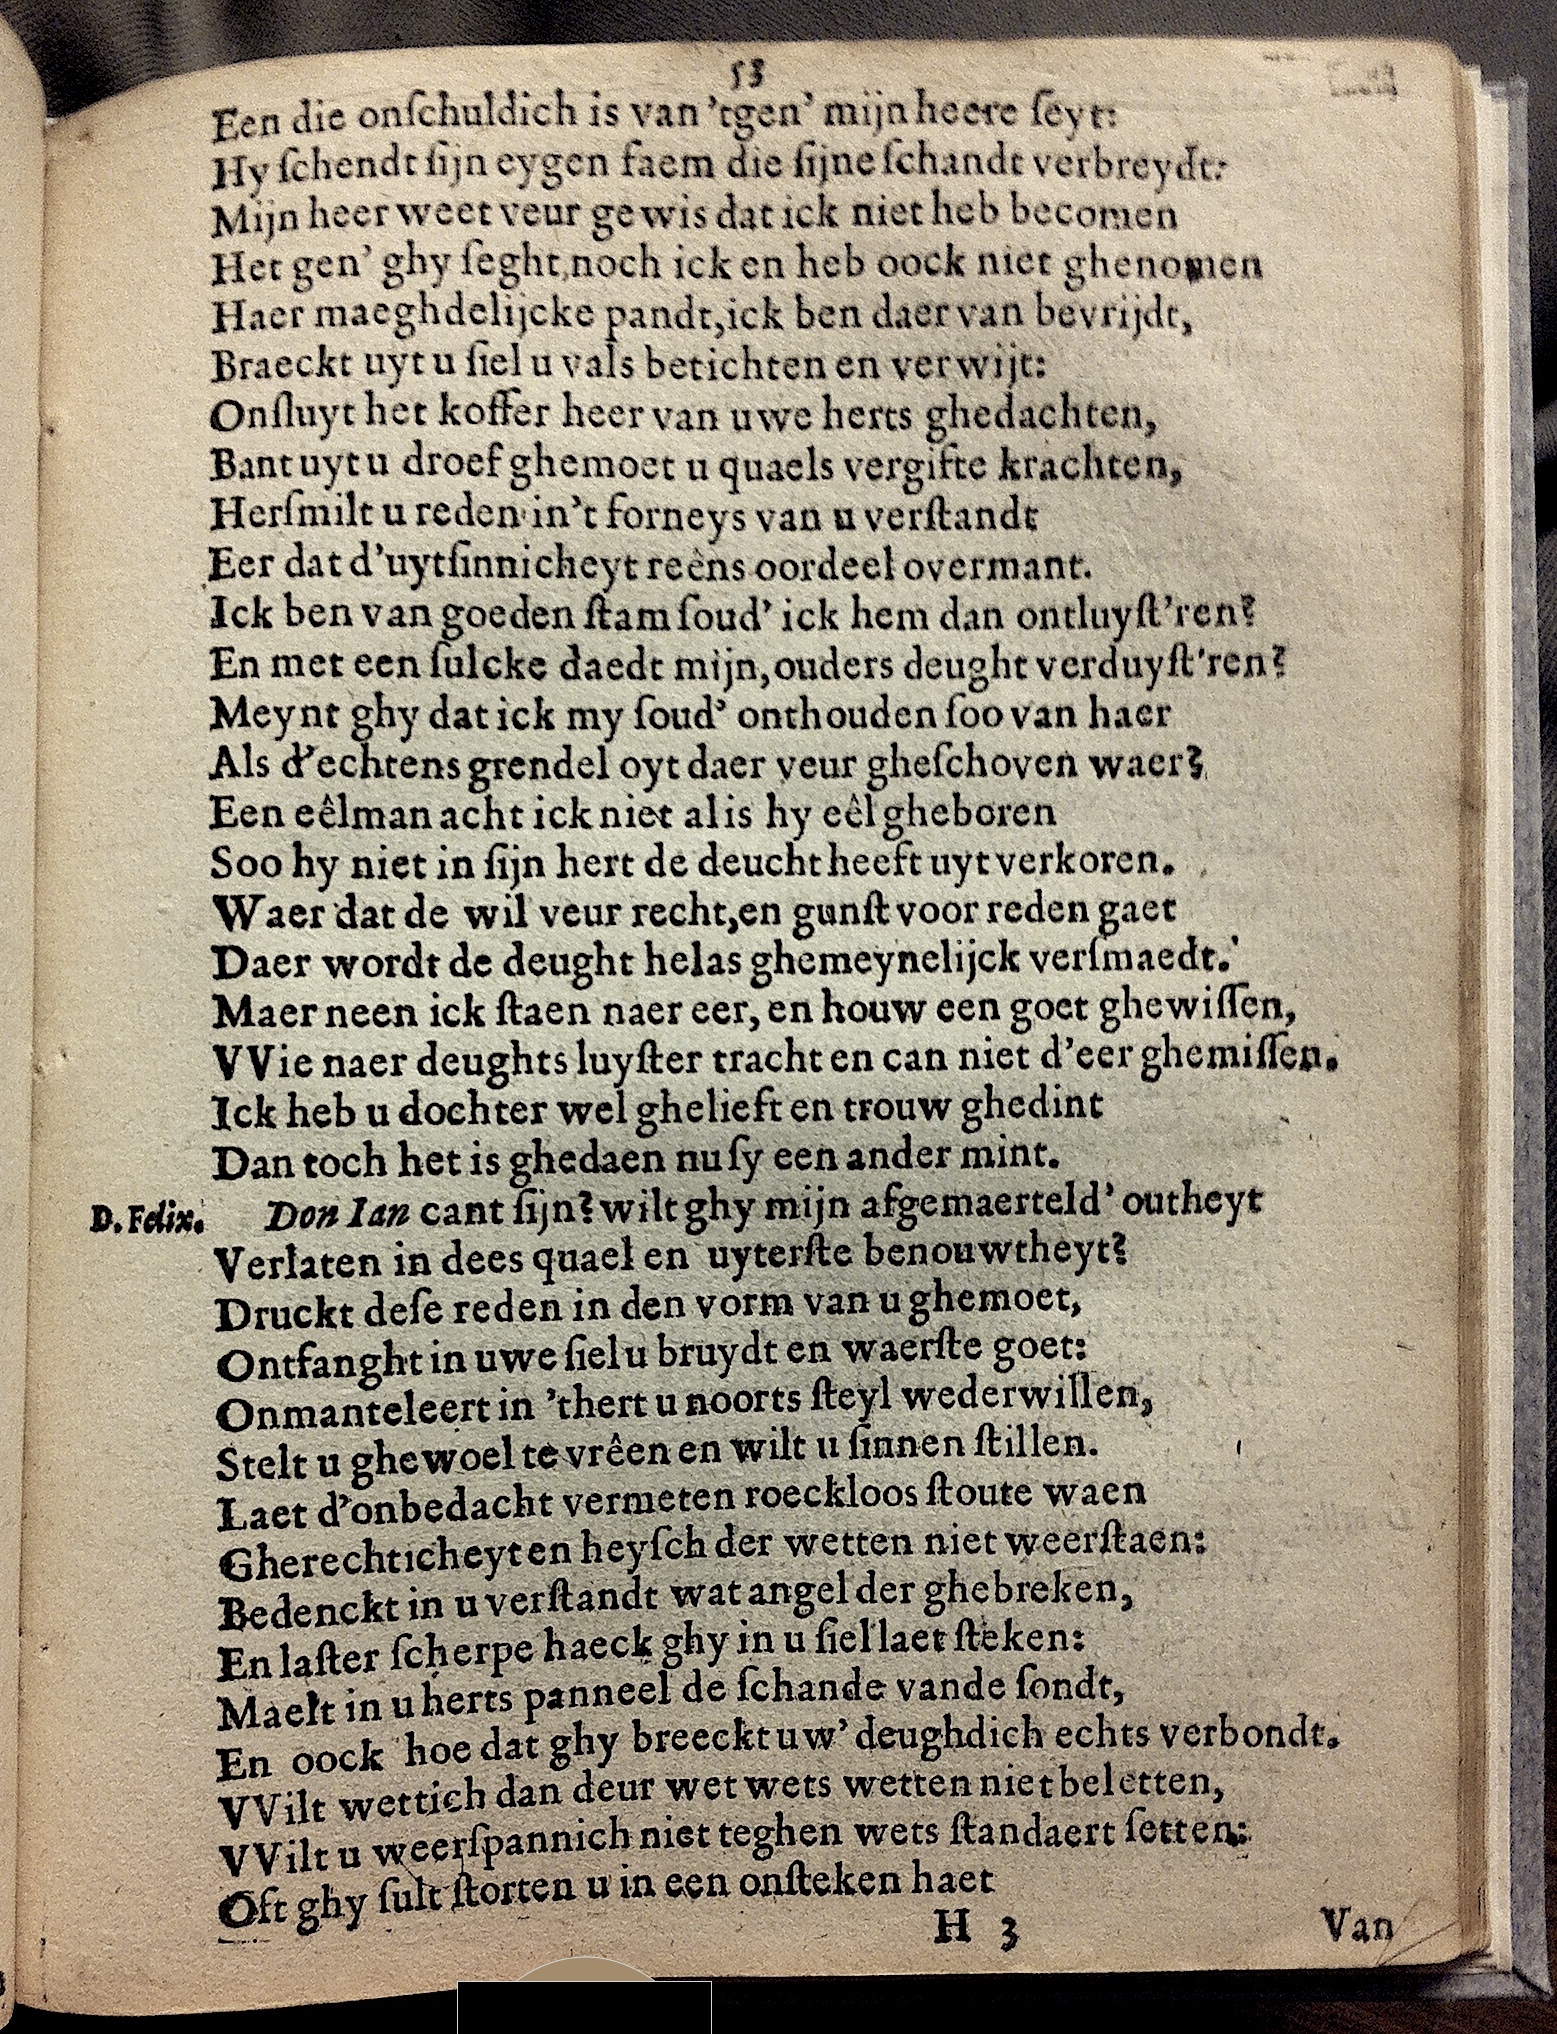 53
Een die onſchuldich is van 'tgen' mijn heere ſeyt:
Hy ſchendt ſijn eygen faem die ſijne ſchandt verbreydt:
Mijn heer weet veur gewis dat ick niet heb becomen
Het gen' ghy ſeght, noch ick en heb oock niet ghenomen
Haer maeghdelijcke pandt, ick ben daer van bevrijdt,
Braeckt uyt u ſiel u vals betichten en verwijt:
Onſluyt het koffer heer van uwe herts ghedachten,
Bant uyt u droef ghemoet u quaels vergifte krachten,
Herſmilt u reden in't forneys van u verſtandt
Eer dat d'uytſinnicheyt reêns oordeel overmant.
Ick ben van goeden ſtam ſoud' ick hem dan ontluyſt'ren?
En met een ſulcke daedt mijn, ouders deught verduyſt'ren?
Meynt ghy dat ick my ſoud' onthouden ſoo van haer
Als d'echtens grendel oyt daer veur gheſchoven waer?
Een eêlman acht ick niet al is hy eêl gheboren
Soo hy niet in ſijn hert de deucht heeft uyt verkoren.
Waer dat de wil veur recht, en gunſt voor reden gaet
Daer wordt de deught helas ghemeynelijck verſmaedt.
Maer neen ick ſtaen naer eer, en houw een goet ghewiſſen,
VVie naer deughts luyſter tracht en can niet d'eer ghemiſſen.
Ick heb u dochter wel ghelieft en trouw ghedint
Dan toch het is ghedaen nu ſy een ander mint.
D. Felix. Don Ian cant ſijn? wilt ghy mijn afgemaerteld' outheyt
Verlaten in dees quael en uyterſte benouwtheyt?
Druckt deſe reden in den vorm van u ghemoet,
Ontfanght in uwe ſiel u bruydt en waerſte goet:
Onmanteleert in 'thert u noorts ſteyl wederwillen,
Stelt u ghewoel te vrêen en wilt u ſinnen ſtillen.
Laet d'onbedacht vermeten roeckloos ſtoute waen
Gherechticheyt en heyſch der wetten niet weerſtaen:
Bedenckt in u verſtandt wat angel der ghebreken,
En laſter ſcherpe haeck ghy in u ſiel laet ſteken:
Maelt in u herts panneel de ſchande vande ſondt,
En oock hoe dat ghy breeckt uw' deughdich echts verbondt.
VVilt wettich dan deur wet wets wetten niet beletten,
VVilt u weerſpannich niet teghen wets ſtandaert ſetten:
Oft ghy ſult ſtorten u in een onſteken haet
H 3 Van